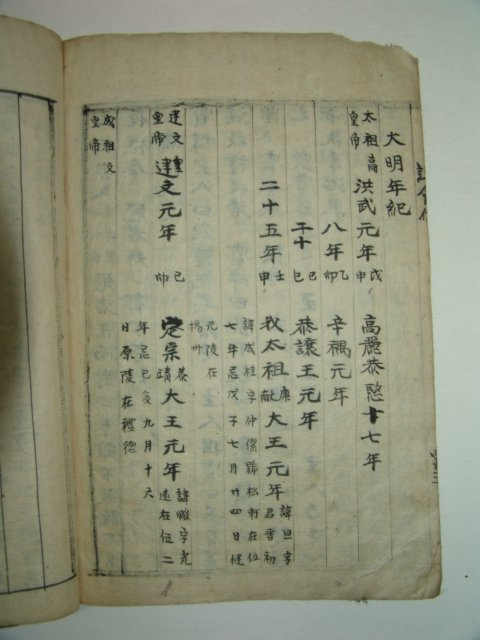 大明年紀
太祖高皇帝 洪武元年 戊申 高麗恭愍十七年
八年 乙卯 辛禑元年
二十 己巳 恭讓王元年
二十五年 壬申 我太祖康獻大王元年 諱旦字君晋初
諱成桂字仲傑號松軒在位
七年忌戊子七月廿四日健
元陵在楊州
建文皇帝 建文元年 己卯 定宗恭靖大王元年 諱曔字光遠在位二
年忌己亥九月十六
日原陵在禮德
成祖文皇帝